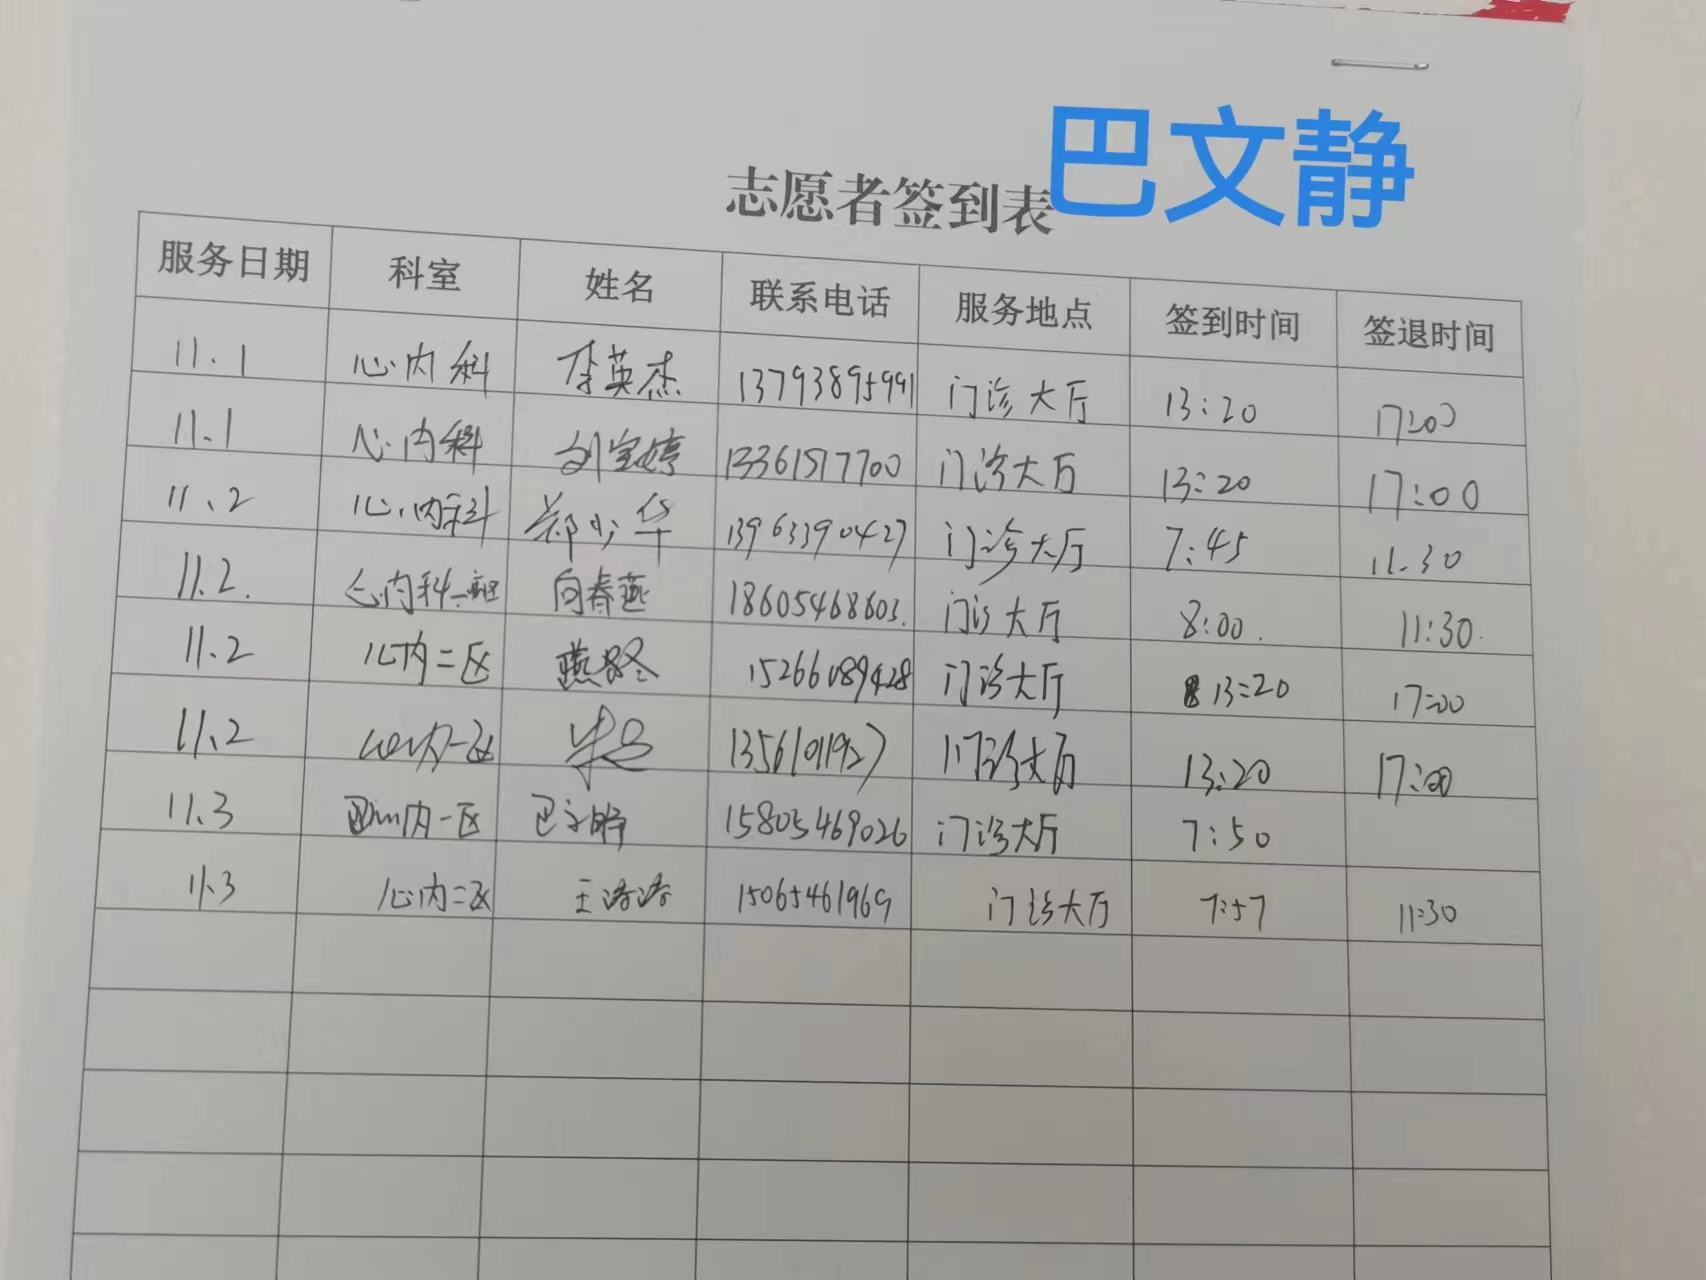 巴文静
志愿者签到表
服务日期 科室 姓名 联系电话 服务地点 签到时间 签退时间
11.1 心内科 李英杰 13793895991 门诊大厅 13:20 17:00
11.1 心内科 刘宝婷 13361517700 门诊大厅 13:20 17:00
11.2 心内科 郑少华 13963390427 门诊大厅 7:45 11.30
11.2. 心内科一病区 向春燕 18605468603. 门诊大厅 8:00. 11:30.
11.2 心内二区 15266189428 门诊大厅 13:20 17:00
11.2 心内一区 13561011927 门诊大厅 13:20 17:00
11.3 心内一区 巴文静 15805469026 门诊大厅 7:50
11.3 心内二区 王涛涛 15065461969 门诊大厅 7:57 11:30